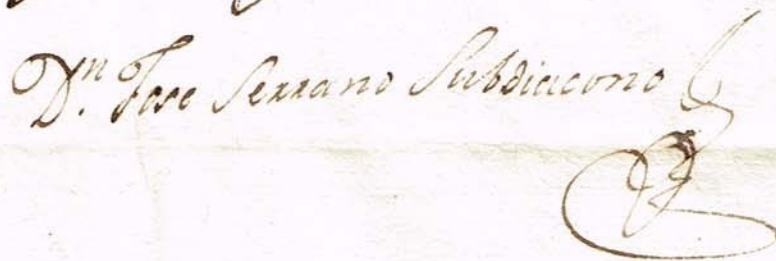 Dn. Jose Serrano Subdiacono